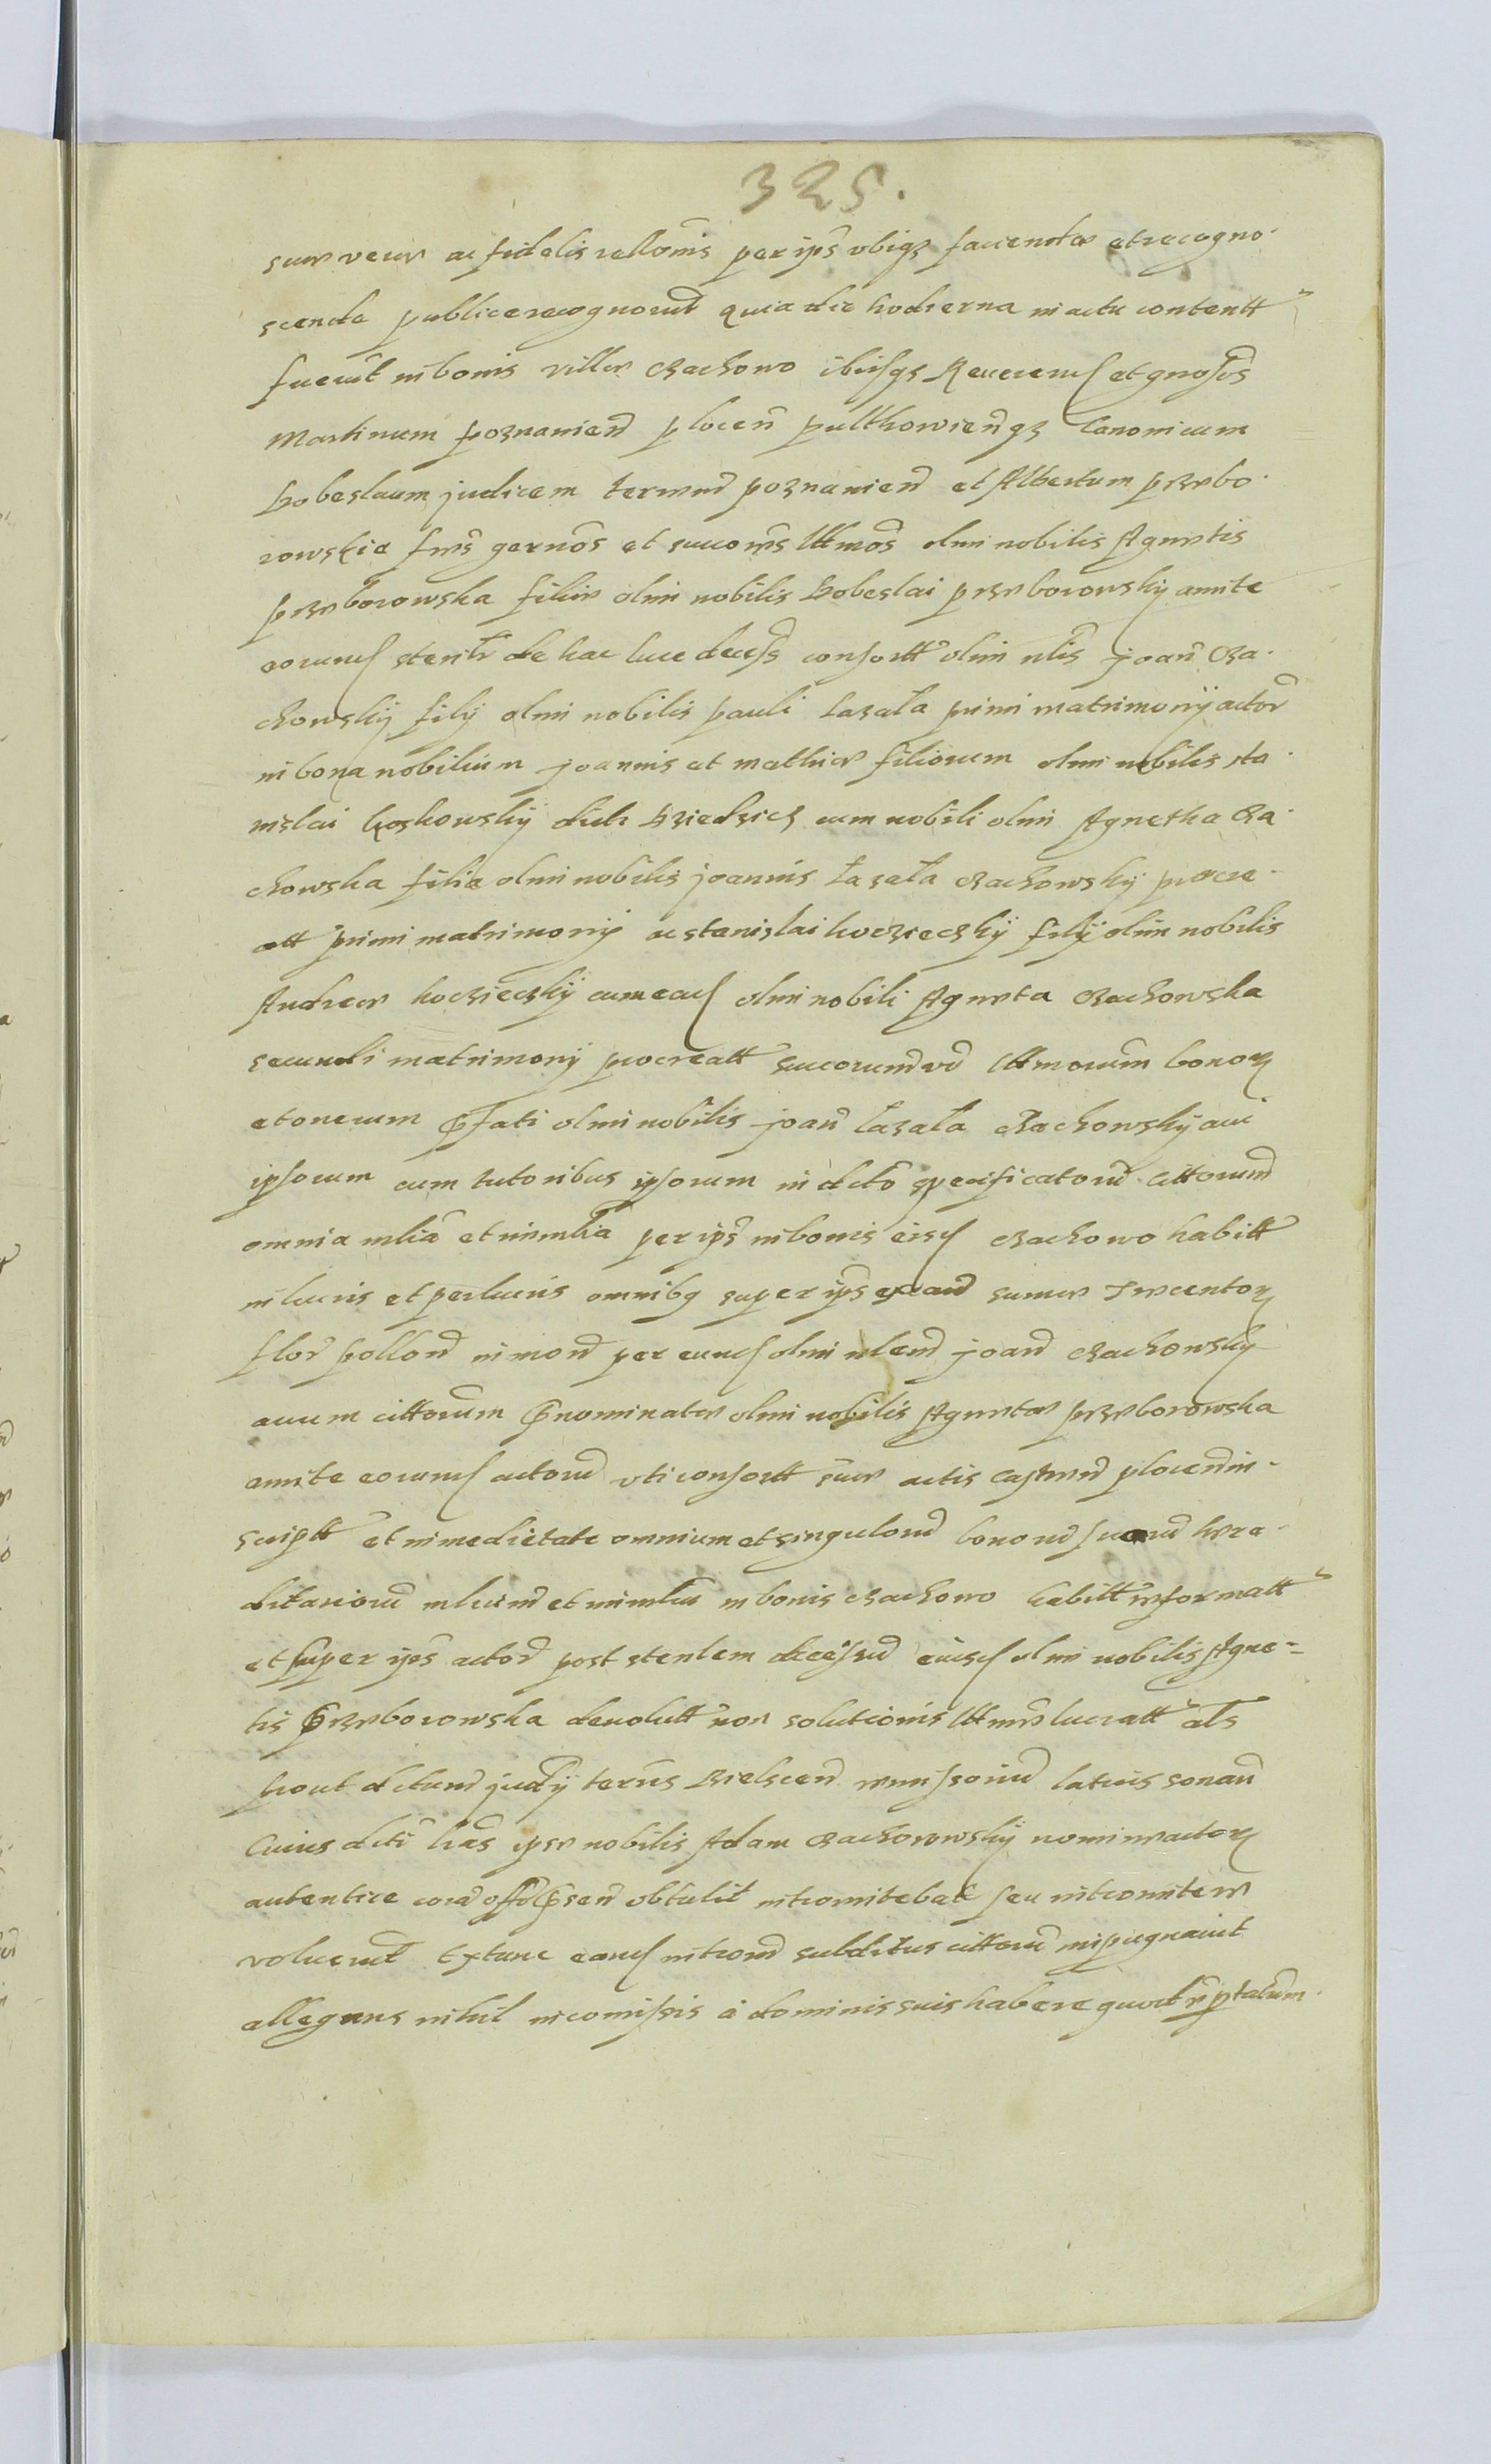 325.
suae verae ac fidelis rellonis per ips ubiqz faciendae et recogno-
scenda publice recognorut quia die hodierna in actu contentt
fuerut in bonis villae Rachowo ibiqz Reverend et gnosos
Martinum poznanien plocen pulthovienqz Canonicum
Dobeslaum judicem terrend poznanien et Albertum przebo-
rowskie frs gernos et succores lttmos olim nobilis Agnetis
przeborowska filiae olim nobilis Dobeslai przeborowskij amite
eorund steriltr de hac luce decess consortt olim nlis joan Ra-
chowskij filij olim nobilis pauli Lazala primi matrimonij actor
in bona nobilium joannis et mathiae filiorum olim nobilis sta-
nislai koskowskij dicti Dziedzicz cum nobili olim Agnetha Ra-
chowska filia olim nobilis joannis Lazala Rachowskij procre-
att primi matrimonij ac stanislai koczieczkij filij olim nobilis
Andreae koczieczkij cum ead olim nobili Agneta Rachowska
secundi matrimonij procreatt succorum lttmorum bonor
et onerum pfati olim nobilis joan Lazala Rachowskij avi
ipsorum cum tutoribus ipsorum in dcto specificatorum cittorum
omnia mlia et immlia per ips in bonis eisd Rachowo habitt
in lucris et perlucris omnibq super ips summae Trecentor
flor pollon in mon per eund olim nlem joan Rachowsky
avum cittorum pnominatae olim nobilis Agnetae przeborowska
amite eorund actorum uti consortt suae actis castren plocen in-
scriptt et in medietate omnium et singulorum bonorum suorum haere-
ditariorum mlium et immlium in bonis Rachowo habitt reformatt
et super ips actor post sterilem decessum eiusd olim nobilis Agne-
tis przeborowska devolutt non solutionis lttme lucratt als
prout dctum judij terris Bielscen remissorium latius sonan
Cuius dcti lras ipse nobilis Adam Rachowskij nomine actor
autentice cora offo psen obtulit intromitebat seu intromitere
voluerut Extunc eand intromn subditus cittorum impugnavit
allegans nihil in comissis à dominis suis habere quod rptatum.